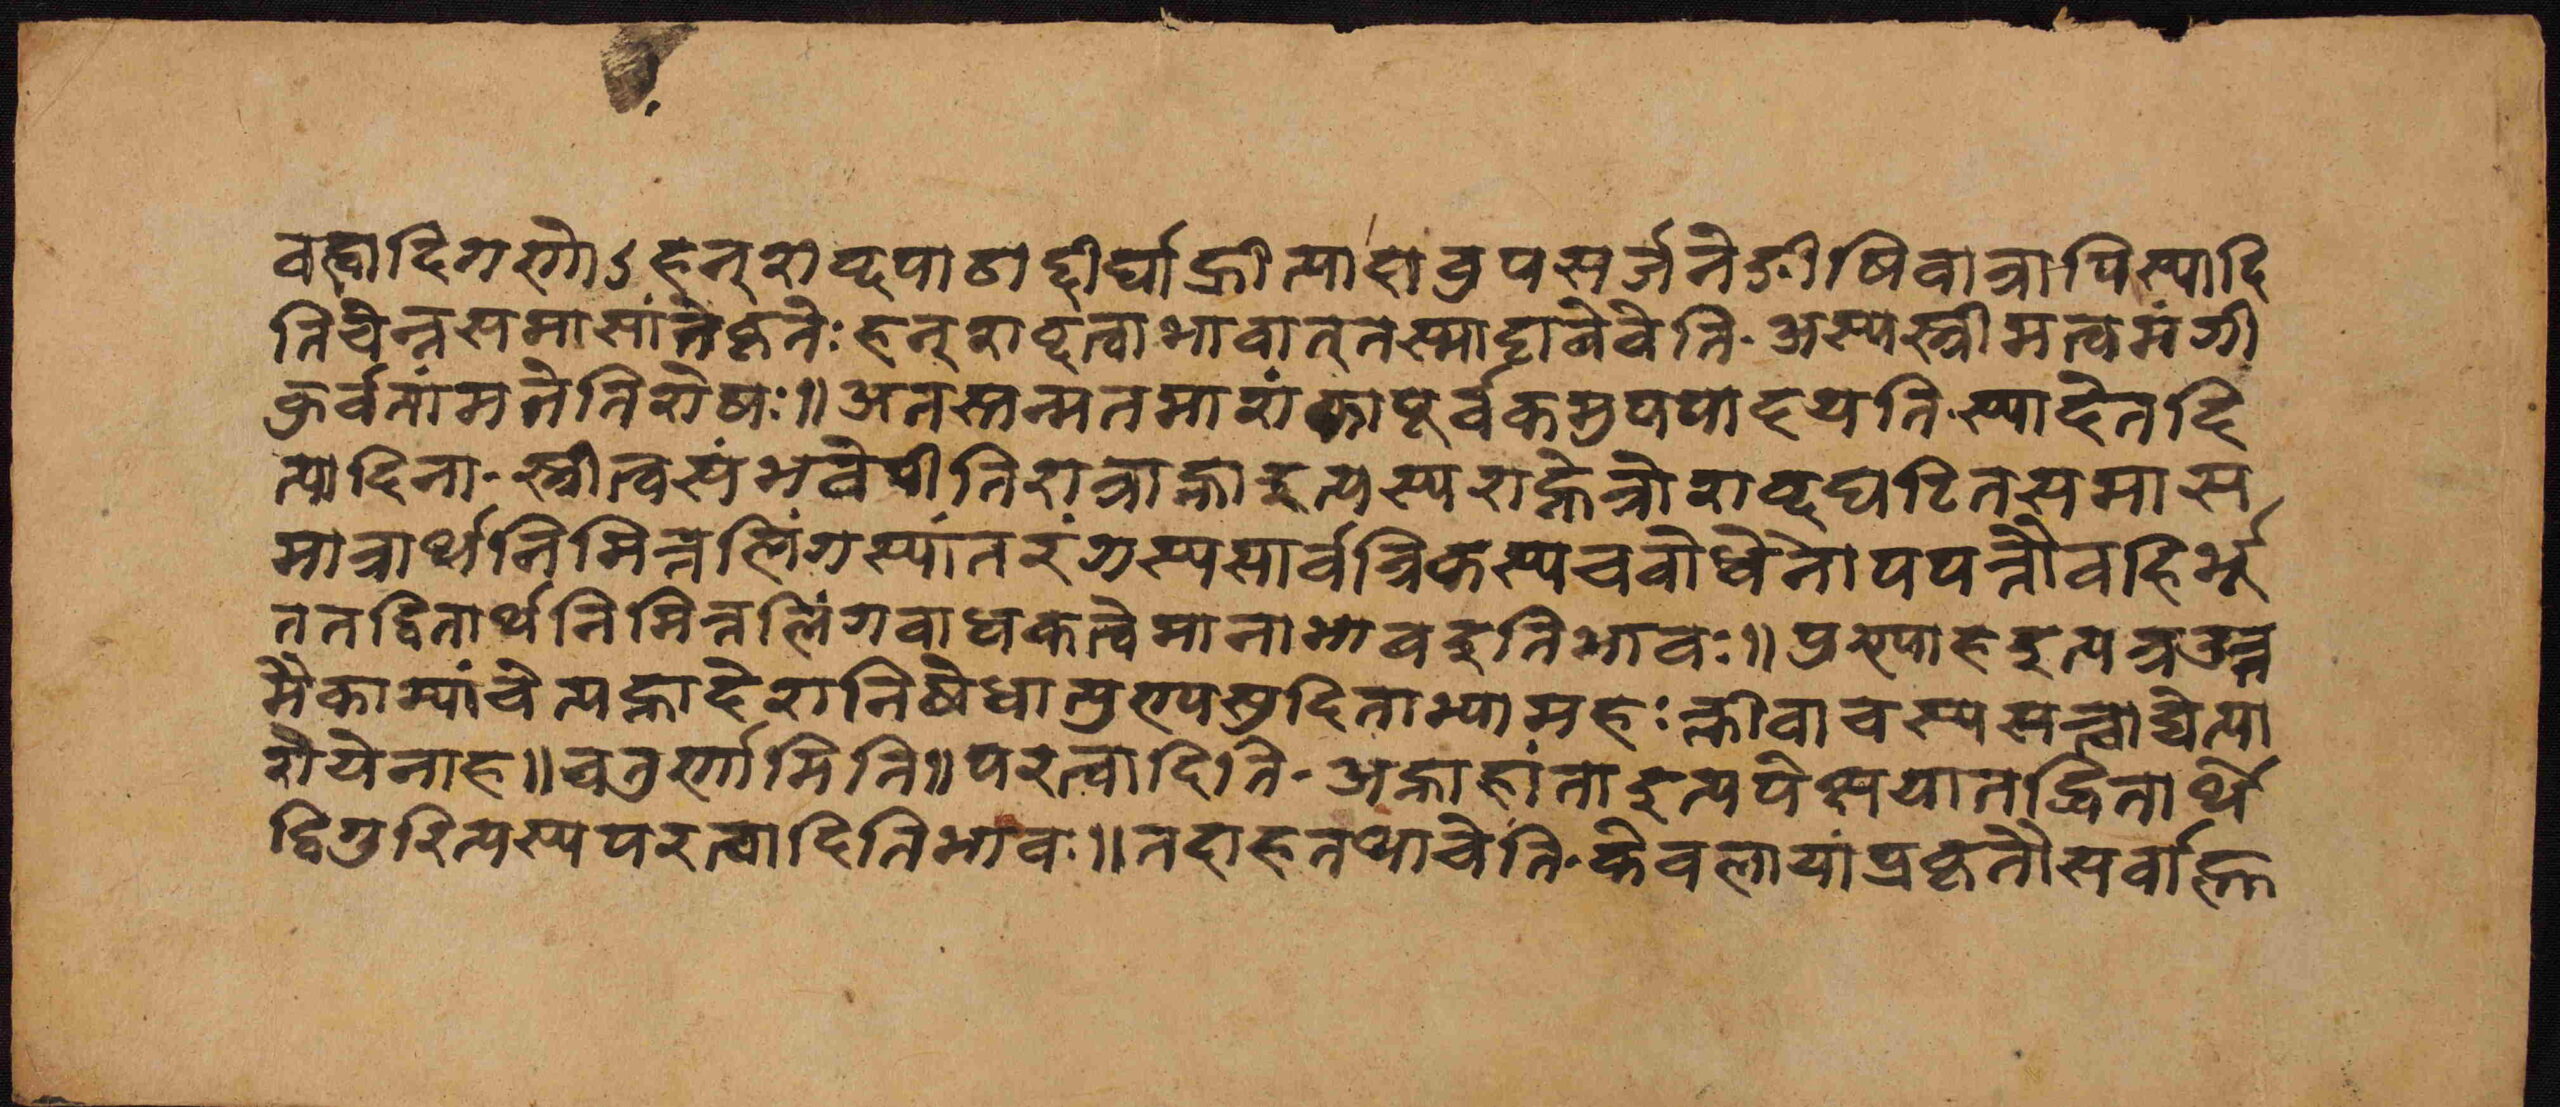 वह्वादिगणेऽहन्शब्दपाठाद्दीर्घाह्नीत्यादावुपसर्जनेङीषिवात्रापिस्यादि
तिचेन्नसमासांतेकृतेःहन्शब्दत्वाभावात्तस्माद्दाबेवेति-अस्यस्त्रीमत्वमंगी
कुर्वतांमतेतिशेषः॥अतस्तन्मतमाशंकापूर्वकमुपपादयति-स्यादेतदि
त्यादिना-स्त्रीत्वसंभवेपीतिरात्राह्नाइत्यस्यराह्नेत्रोशब्दघटितसमास
मात्रार्थनिमित्तलिंगस्यांतरंगस्यसार्वत्रिकस्यचवोधेनोपपत्तौवहिर्भू
ततद्धितार्थनिमित्तलिंगवाधकत्वेमानाभावइतिभावः॥पुण्याहइत्यत्रउत्त
मैकाभ्यांचेत्यह्नादेशनिषेधात्पुण्यसुदिनाभ्यामहःक्लीवाचस्यसत्त्वाद्येत्या
शयेनाह॥चतुर्णामिति॥परत्वादिति-अह्नाहांताइत्यपेक्षयातद्धितार्थे
द्विगुरित्यस्यपरत्वादितिभावः॥तदाहतथाचेति-केवलायांप्रकृतौसर्वाह्ण